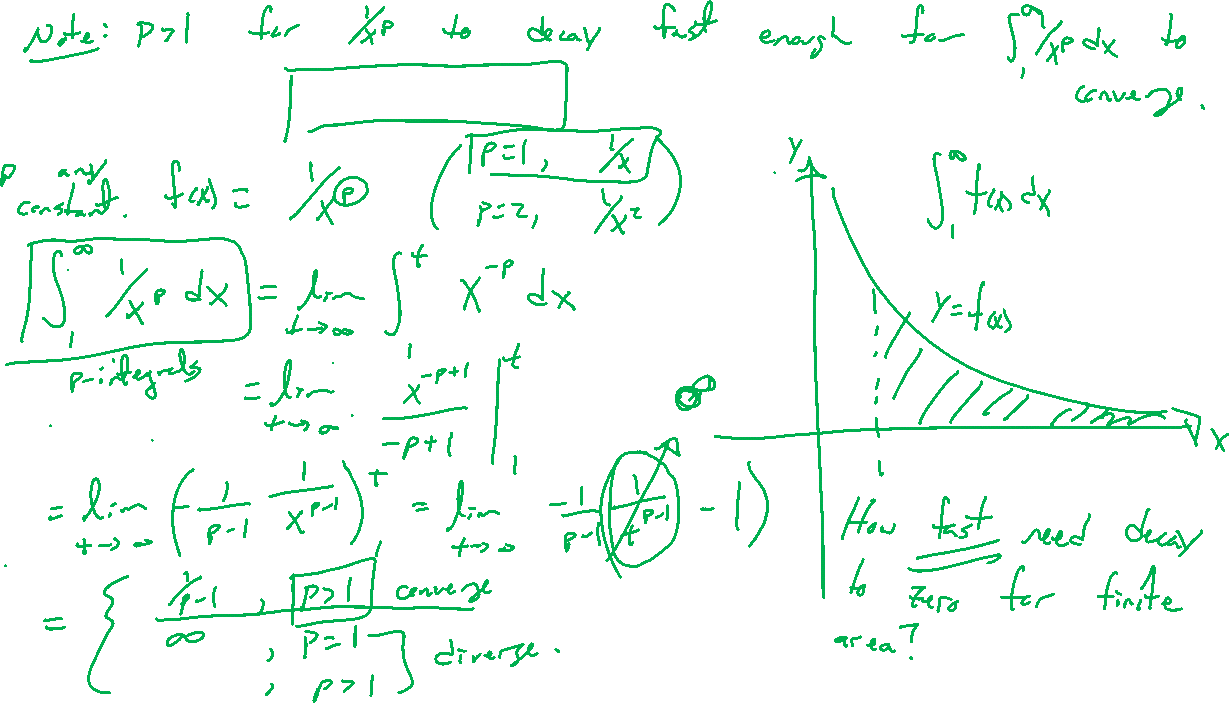 Note: p>1 for 1/x^p to decay fast enough for ∫_1^∞ 1/x^p dx to
converge.
p any
constant. f(x) = 1/x^p (p=1, 1/x
p=2, 1/x^2)
∫_1^∞ 1/x^p dx = lim_{t→∞} ∫_1^t x^{-p} dx
p-integrals
= lim_{t→∞} x^{-p+1}/(-p+1) |_1^t
= lim_{t→∞} (-1/(p-1) 1/x^{p-1})_1^t = lim_{t→∞} -1/(p-1) (1/t^{p-1} - 1)
= { 1/(p-1), p>1 converge
∞, p=1
, p>1 } diverge.
y
∫_1^∞ f(x) dx
y=f(x)
x
0
1
How fast need decay
to zero for finite
area?